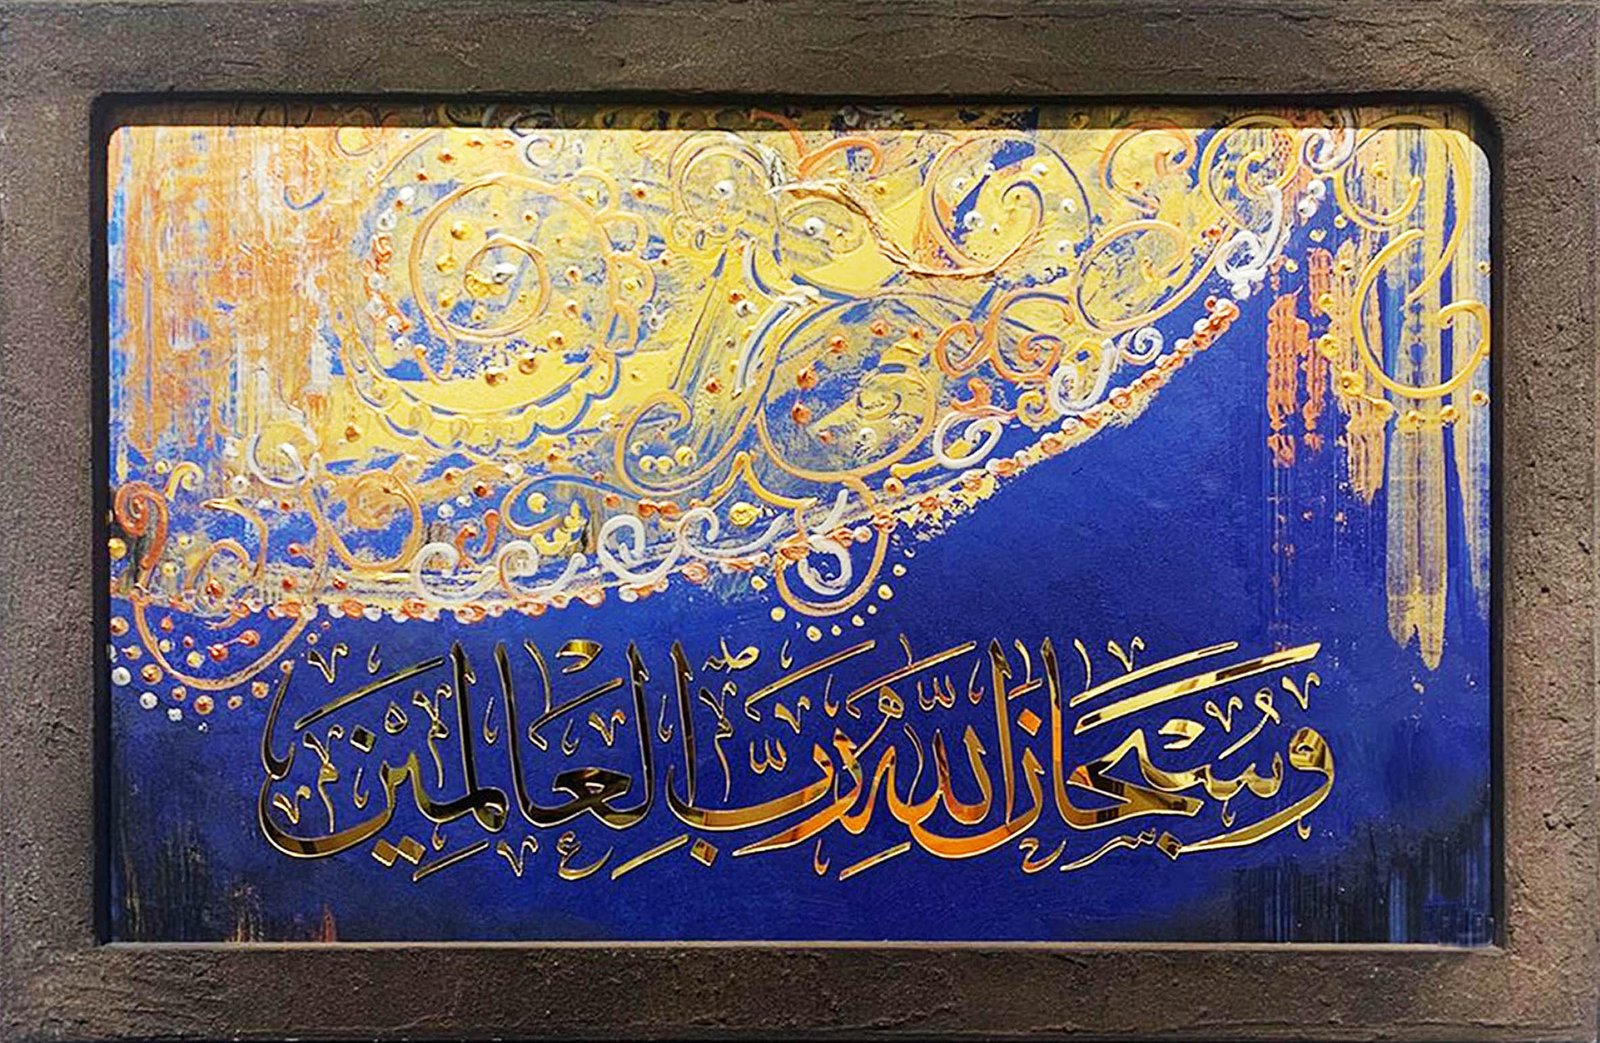 وَسُبْحَانَ اللَّهِ رَبِّ الْعَالَمِينَ